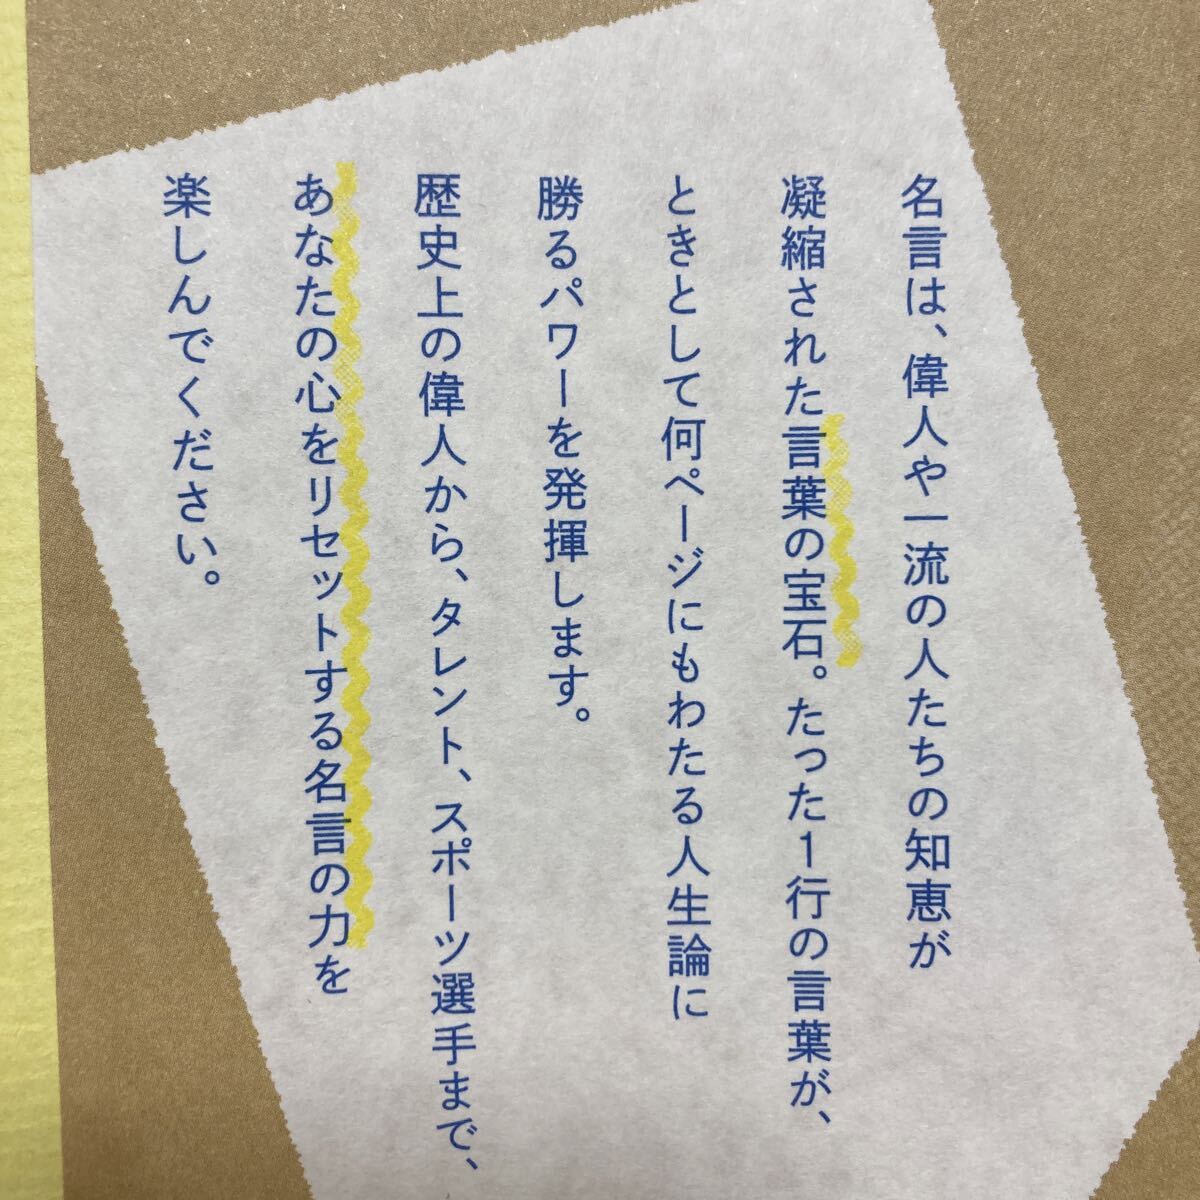 名言は、偉人や一流の人たちの知恵が
凝縮された言葉の宝石。たった1行の言葉が、
ときとして何ページにもわたる人生論に
勝るパワーを発揮します。
歴史上の偉人から、タレント、スポーツ選手まで、
あなたの心をリセットする名言の力を
楽しんでください。